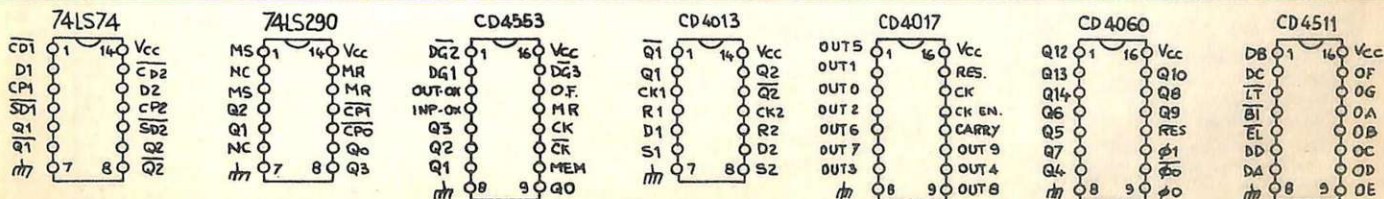 74LS74
C̅D̅1̅ 1 14 Vcc
D1 C̅D̅2̅
CP1 D2
S̅D̅1̅ CP2
Q1 S̅D̅2̅
Q̅1̅ Q2
7 8 Q̅2̅
74LS290
MS 1 14 Vcc
NC MR
MS MR
Q2 C̅P̅1̅
Q1 C̅P̅0̅
NC Q0
7 8 Q3
CD4553
D̅G̅2̅ 1 16 Vcc
DG1 D̅G̅3̅
OUT-OX O.F.
INP-OX MR
Q3 CK
Q2 C̅K̅
Q1 MEM
8 9 Q0
CD4013
Q̅1̅ 1 14 Vcc
Q1 Q2
CK1 Q̅2̅
R1 CK2
D1 R2
S1 D2
7 8 S2
CD4017
OUT5 1 16 Vcc
OUT1 RES.
OUT0 CK
OUT2 CK EN.
OUT6 CARRY
OUT7 OUT9
OUT3 OUT4
8 9 OUT8
CD4060
Q12 1 16 Vcc
Q13 Q10
Q14 Q8
Q6 Q9
Q5 RES
Q7 ø1
Q4 ø̅0̅
8 9 ø0
CD4511
DB 1 16 Vcc
DC OF
L̅T̅ OG
B̅I̅ OA
E̅L̅ OB
DD OC
DA OD
8 9 OE